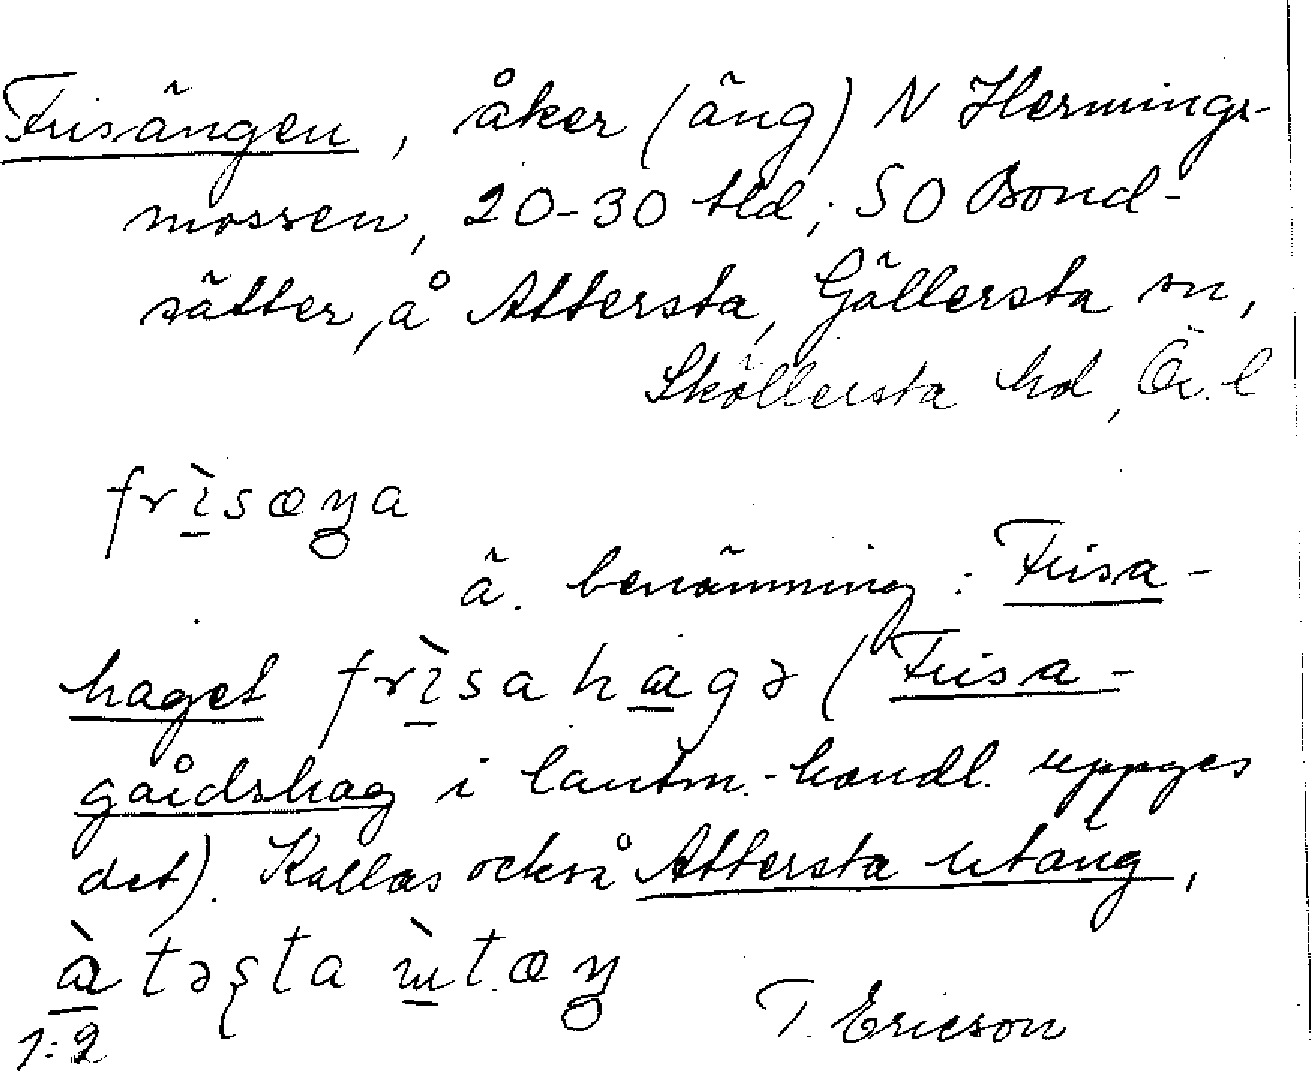 Frisängen, åker (äng) N Hermings-
mossen, 20-30 tld; SO Bond-
sätter, å Attersta, Gällersta sn,
Sköllersta hd, Ör. l
frìsæŋa
ä. benämning: Frisa-
haget frìsahagə (Frisa-
gårdshag i lantm.-handl. uppges
det). Kallas också Attersta utäng,
àtəʂta ùtæŋ
1:2
T. Ericson